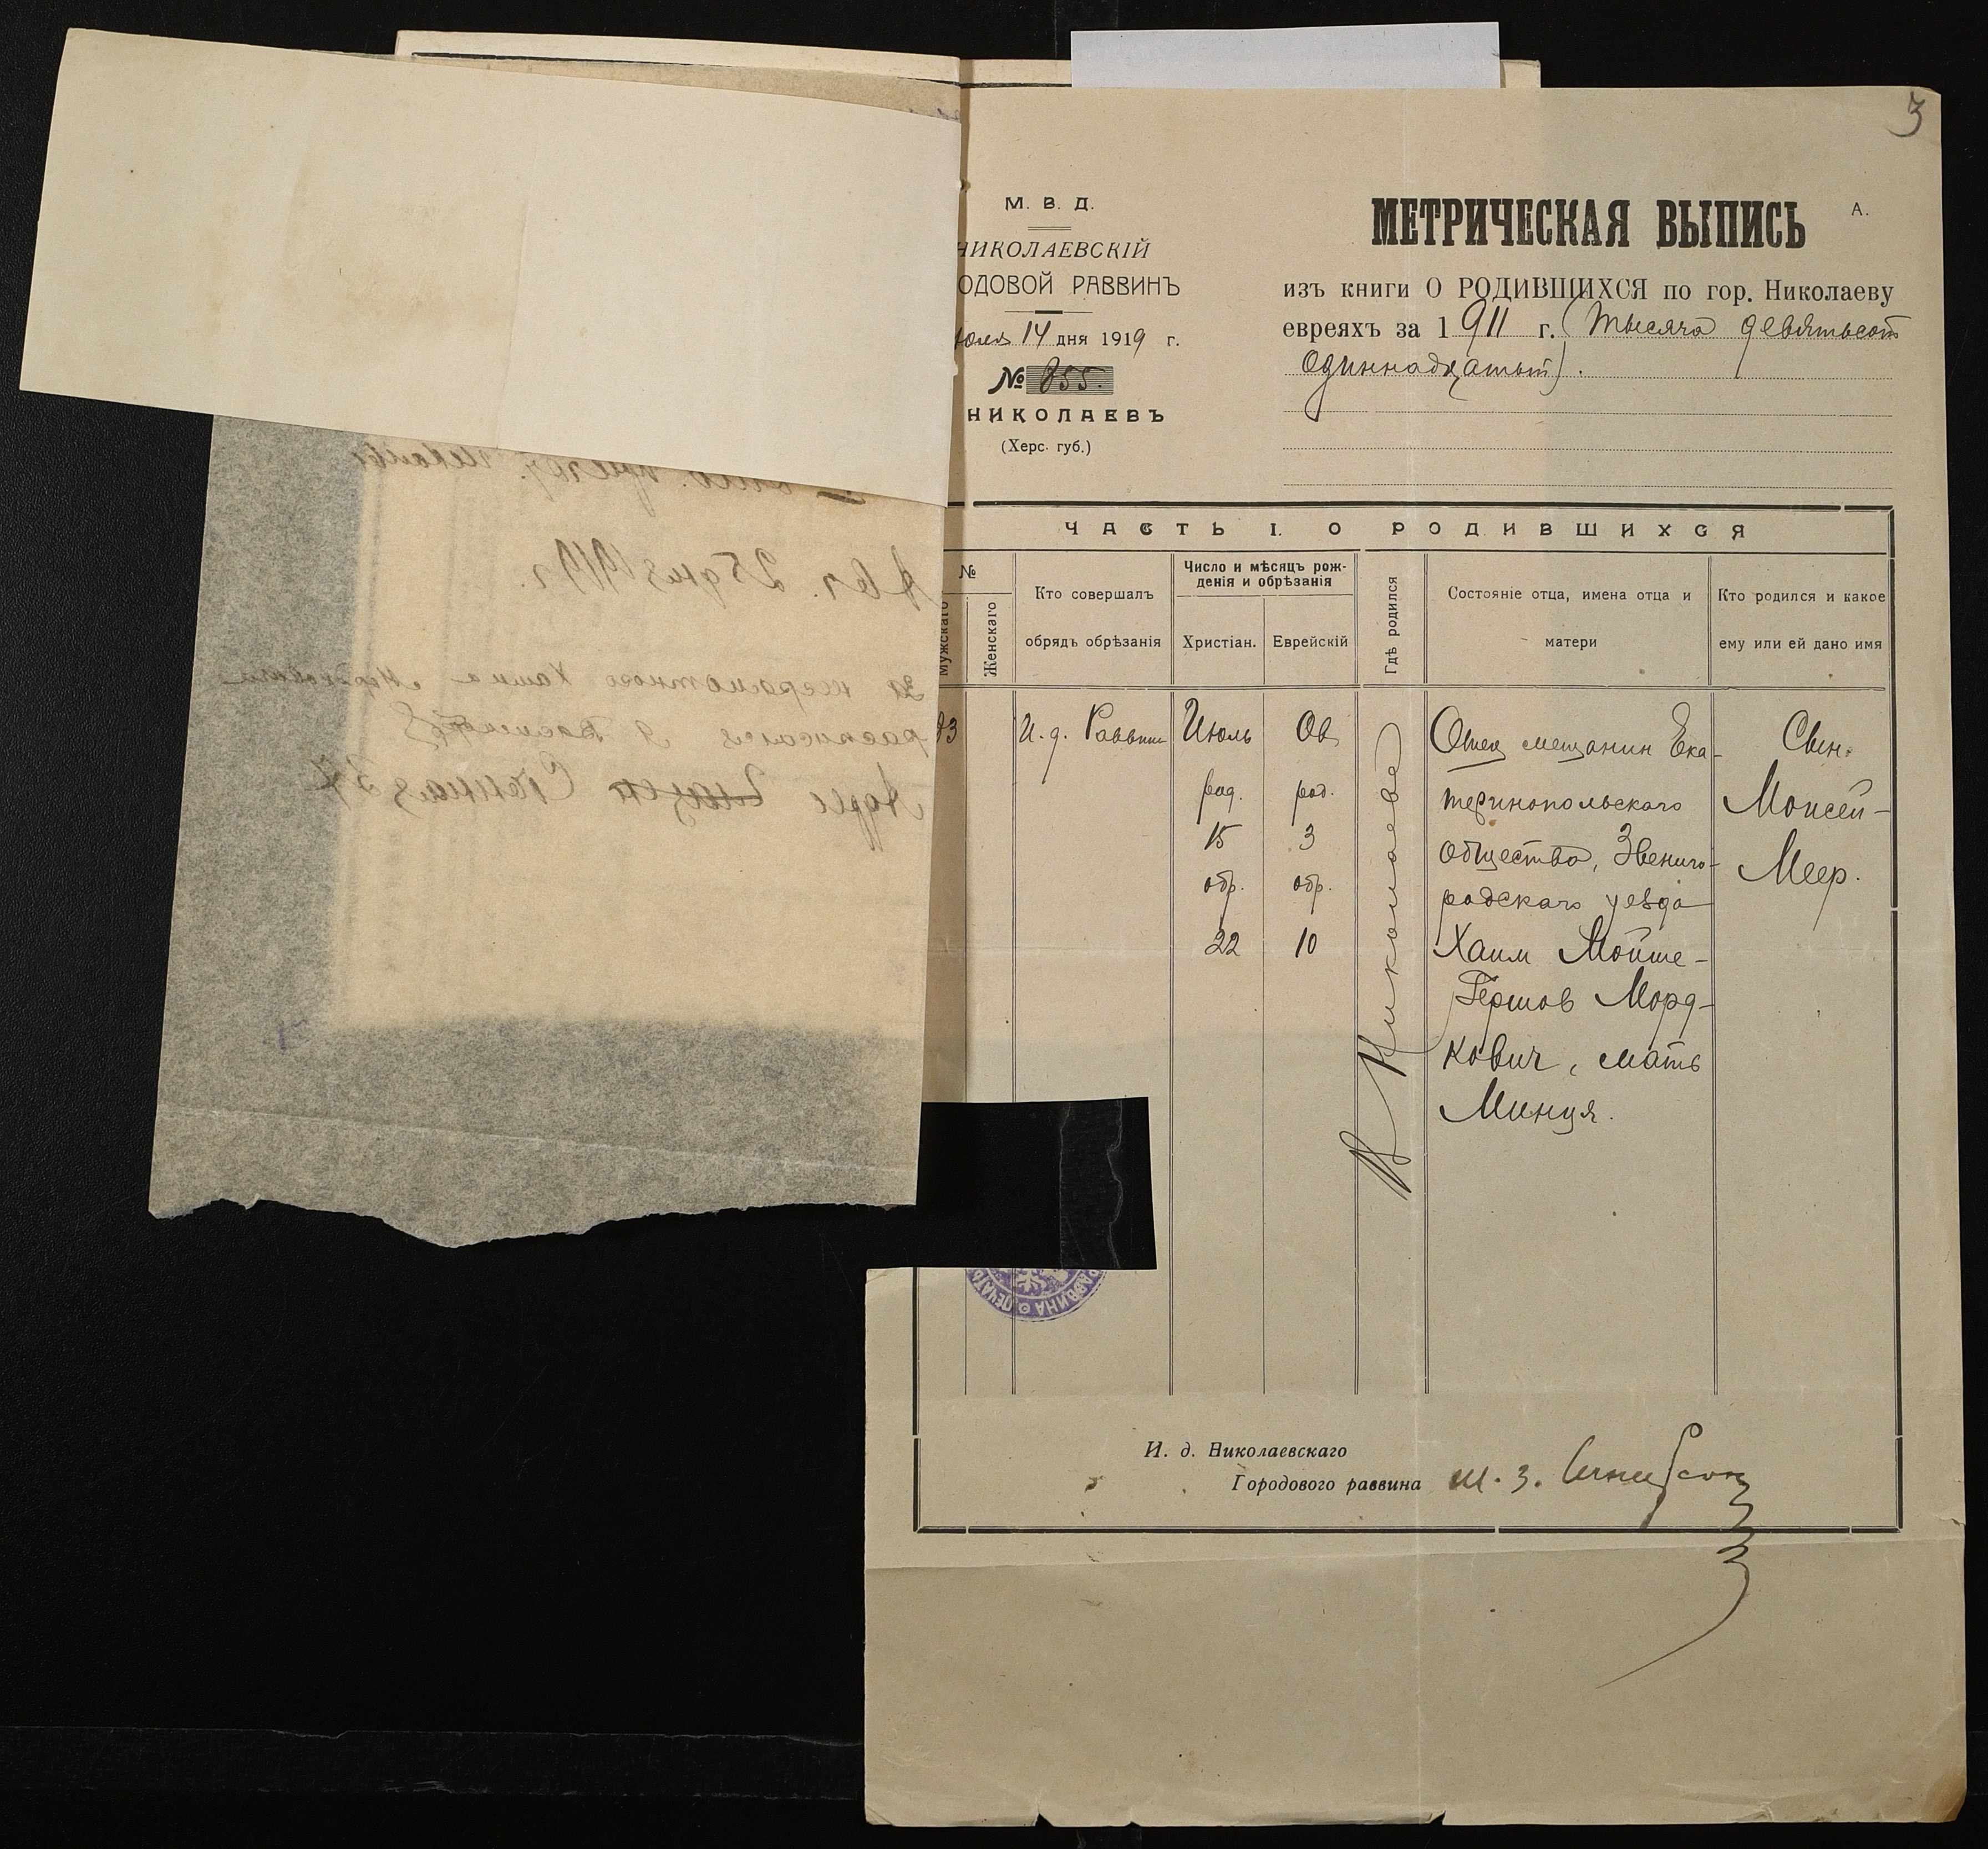 3
М. В. Д.
НИКОЛАЕВСКІЙ
ОДОВОЙ РАВВИНЪ
юля 14 дня 1919 г.
№ 855.
НИКОЛАЕВЪ
(Херс. губ.)
МЕТРИЧЕСКАЯ ВЫПИСЬ
А.
изъ книги О РОДИВШИХСЯ по гор. Николаеву
евреяхъ за 1911 г. (Тысяча девятьсот
одиннадцатый).
ЧАСТЬ I. О РОДИВШИХСЯ
№
Мужскаго
Женскаго
Кто совершалъ
обрядъ обрѣзанія
Число и мѣсяцъ рож-
денія и обрѣзанія
Христіан.
Еврейскій
Гдѣ родился
Состояніе отца, имена отца и
матери
Кто родился и какое
ему или ей дано имя
93
И. д. Раввин
Июль
рад.
15
обр.
22
Ов
род.
3
обр.
10
В Николаеве
Отец мещанин Ека-
теринопольскаго
общества, Звениго-
родскаго уезда
Хаим Мойше-
Гершов Морд-
кович, мать
Минця.
Сын.
Моисей-
Меер.
РАВВИНА ПЕЧАТЬ
И. д. Николаевскаго
Городового раввина Ш. З.
Авг. 25 дня 1919 г.
За неграмотного Хаима Мордковича
расписался я
Адрес Сенная 37